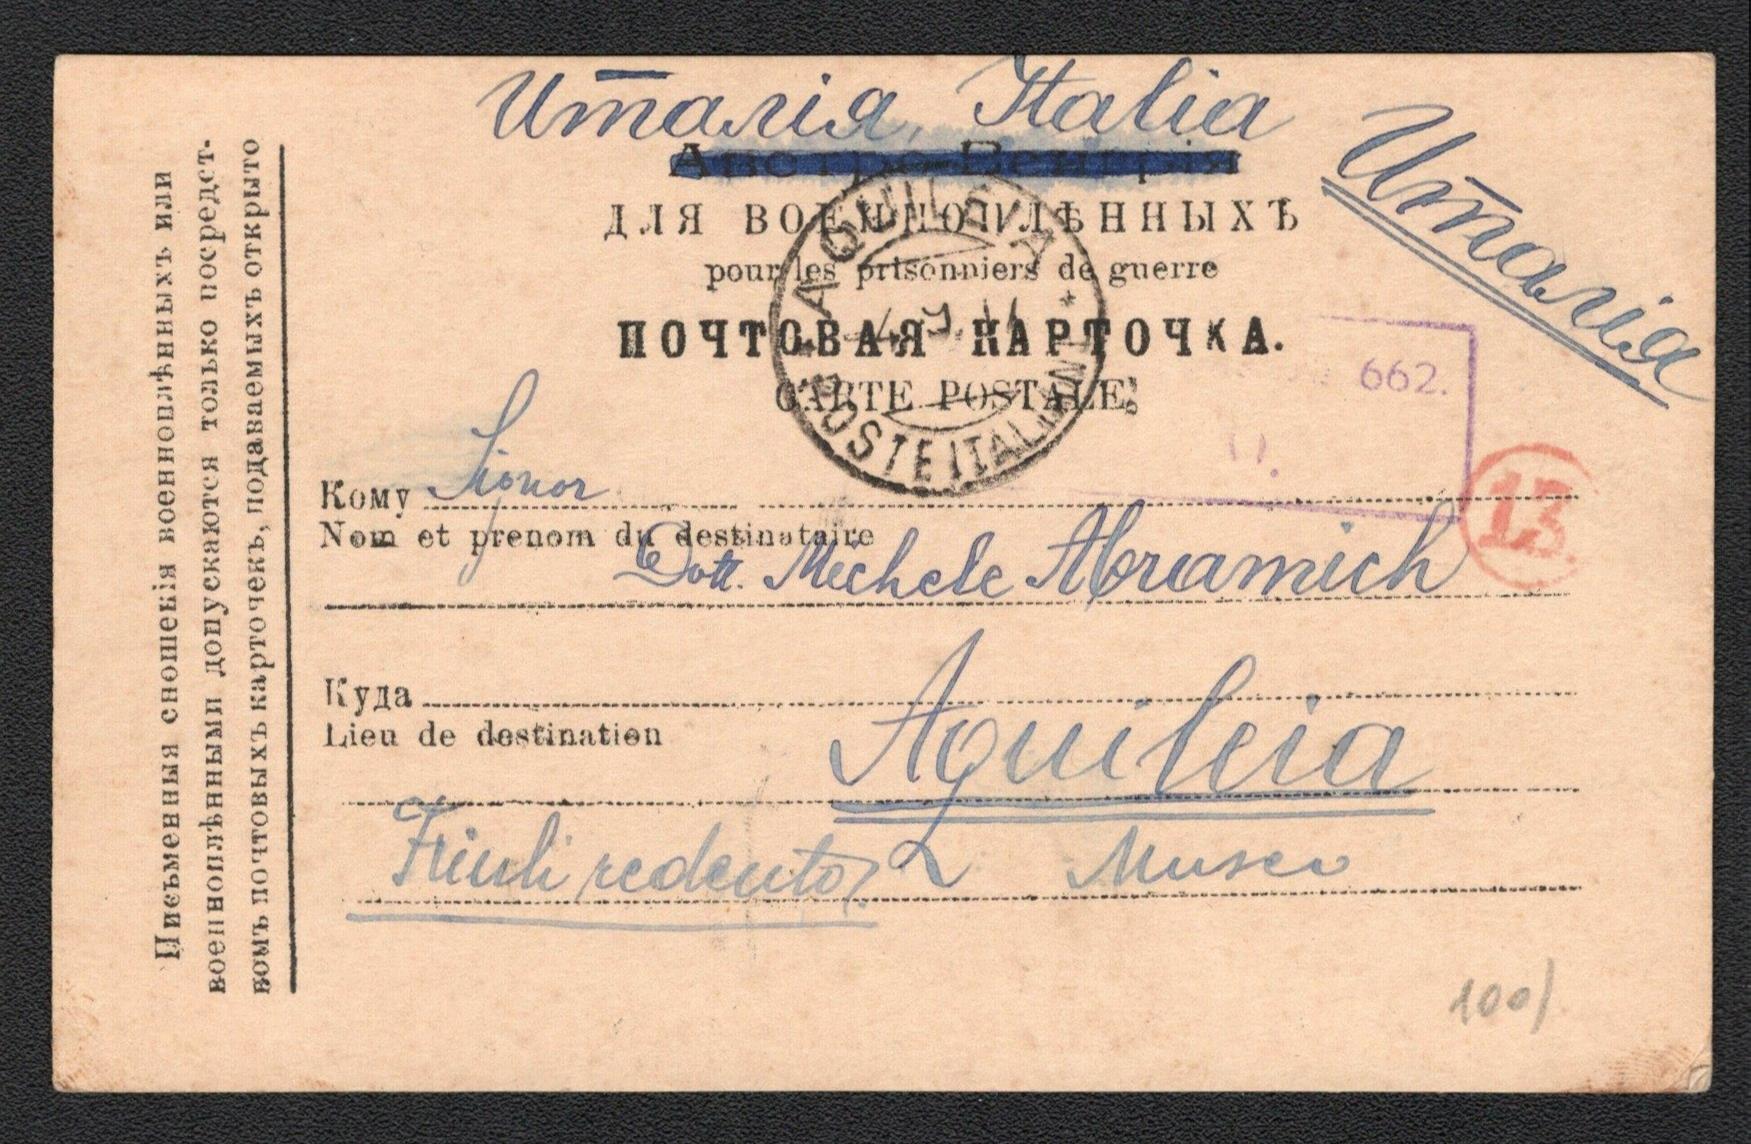 Италія, Italia
Австро-Венгрія
Италія
ДЛЯ ВОЕННОПЛѢННЫХЪ
pour les prisonniers de guerre
ПОЧТОВАЯ КАРТОЧКА.
CARTE POSTALE.
AQUILEIA
POSTE ITALIANE
662.
13.
Кому Signor
Nom et prenom du destinataire
Dott. Michele Abramich
Куда
Lieu de destination
Aquileia
Friuli redento Museo
100
Письменныя сношенія военноплѣнныхъ или
военноплѣнными допускаются только посредст-
вомъ почтовыхъ карточекъ, подаваемыхъ открыто